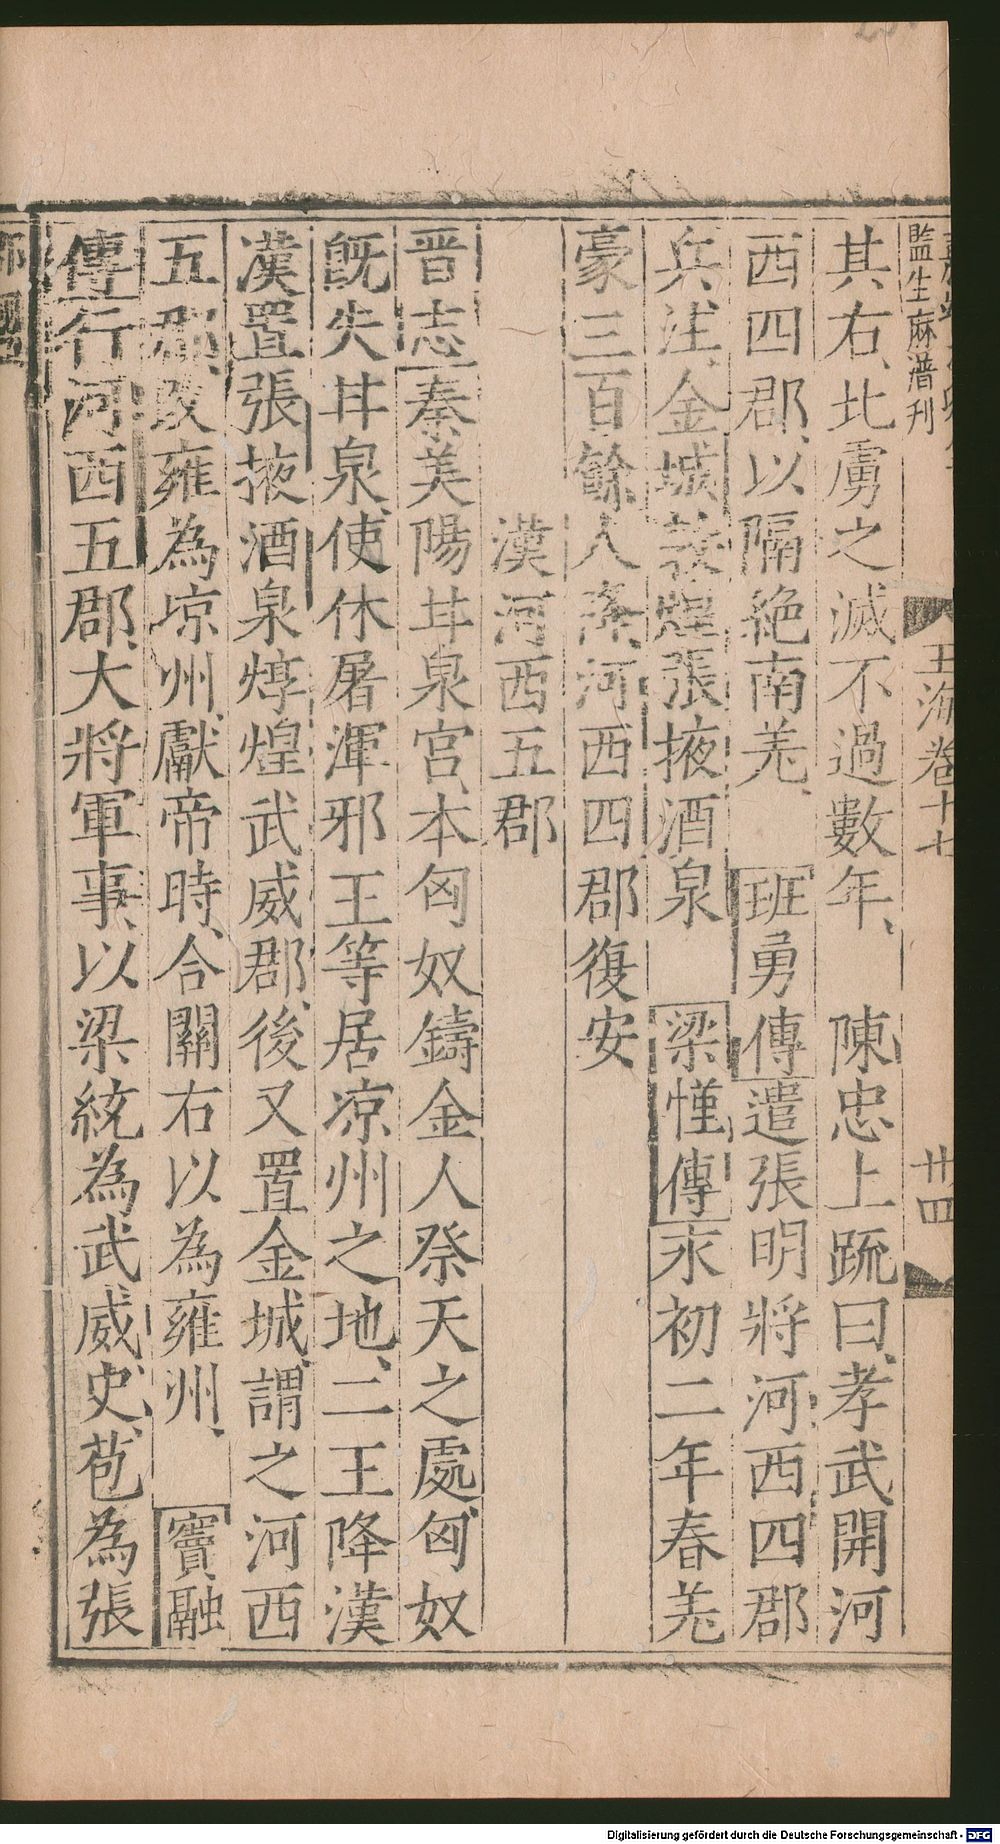 監生麻潽刊
玉海卷十七
卅四
其右、北虜之滅不過數年、 陳忠上䟽曰、孝武開河
西四郡、以隔絶南羗、 班勇傳遣張明將河西四郡
兵注、金城燉煌張掖酒泉 梁慬傳永初二年春羗
豪三百餘人降、河西四郡復安
漢河西五郡
晋志秦美陽甘泉宫、本匈奴鑄金人祭天之處、匈奴
旣失甘泉、使休屠渾邪王等居凉州之地、二王降漢
漢置張掖酒泉燉煌武威郡、後又置金城、謂之河西
五郡、改雍為凉州、獻帝時、合關右以為雍州、 竇融
傳行河西五郡、大將軍事、以梁統為武威、史苞為張
Digitalisierung gefördert durch die Deutsche Forschungsgemeinschaft - DFG